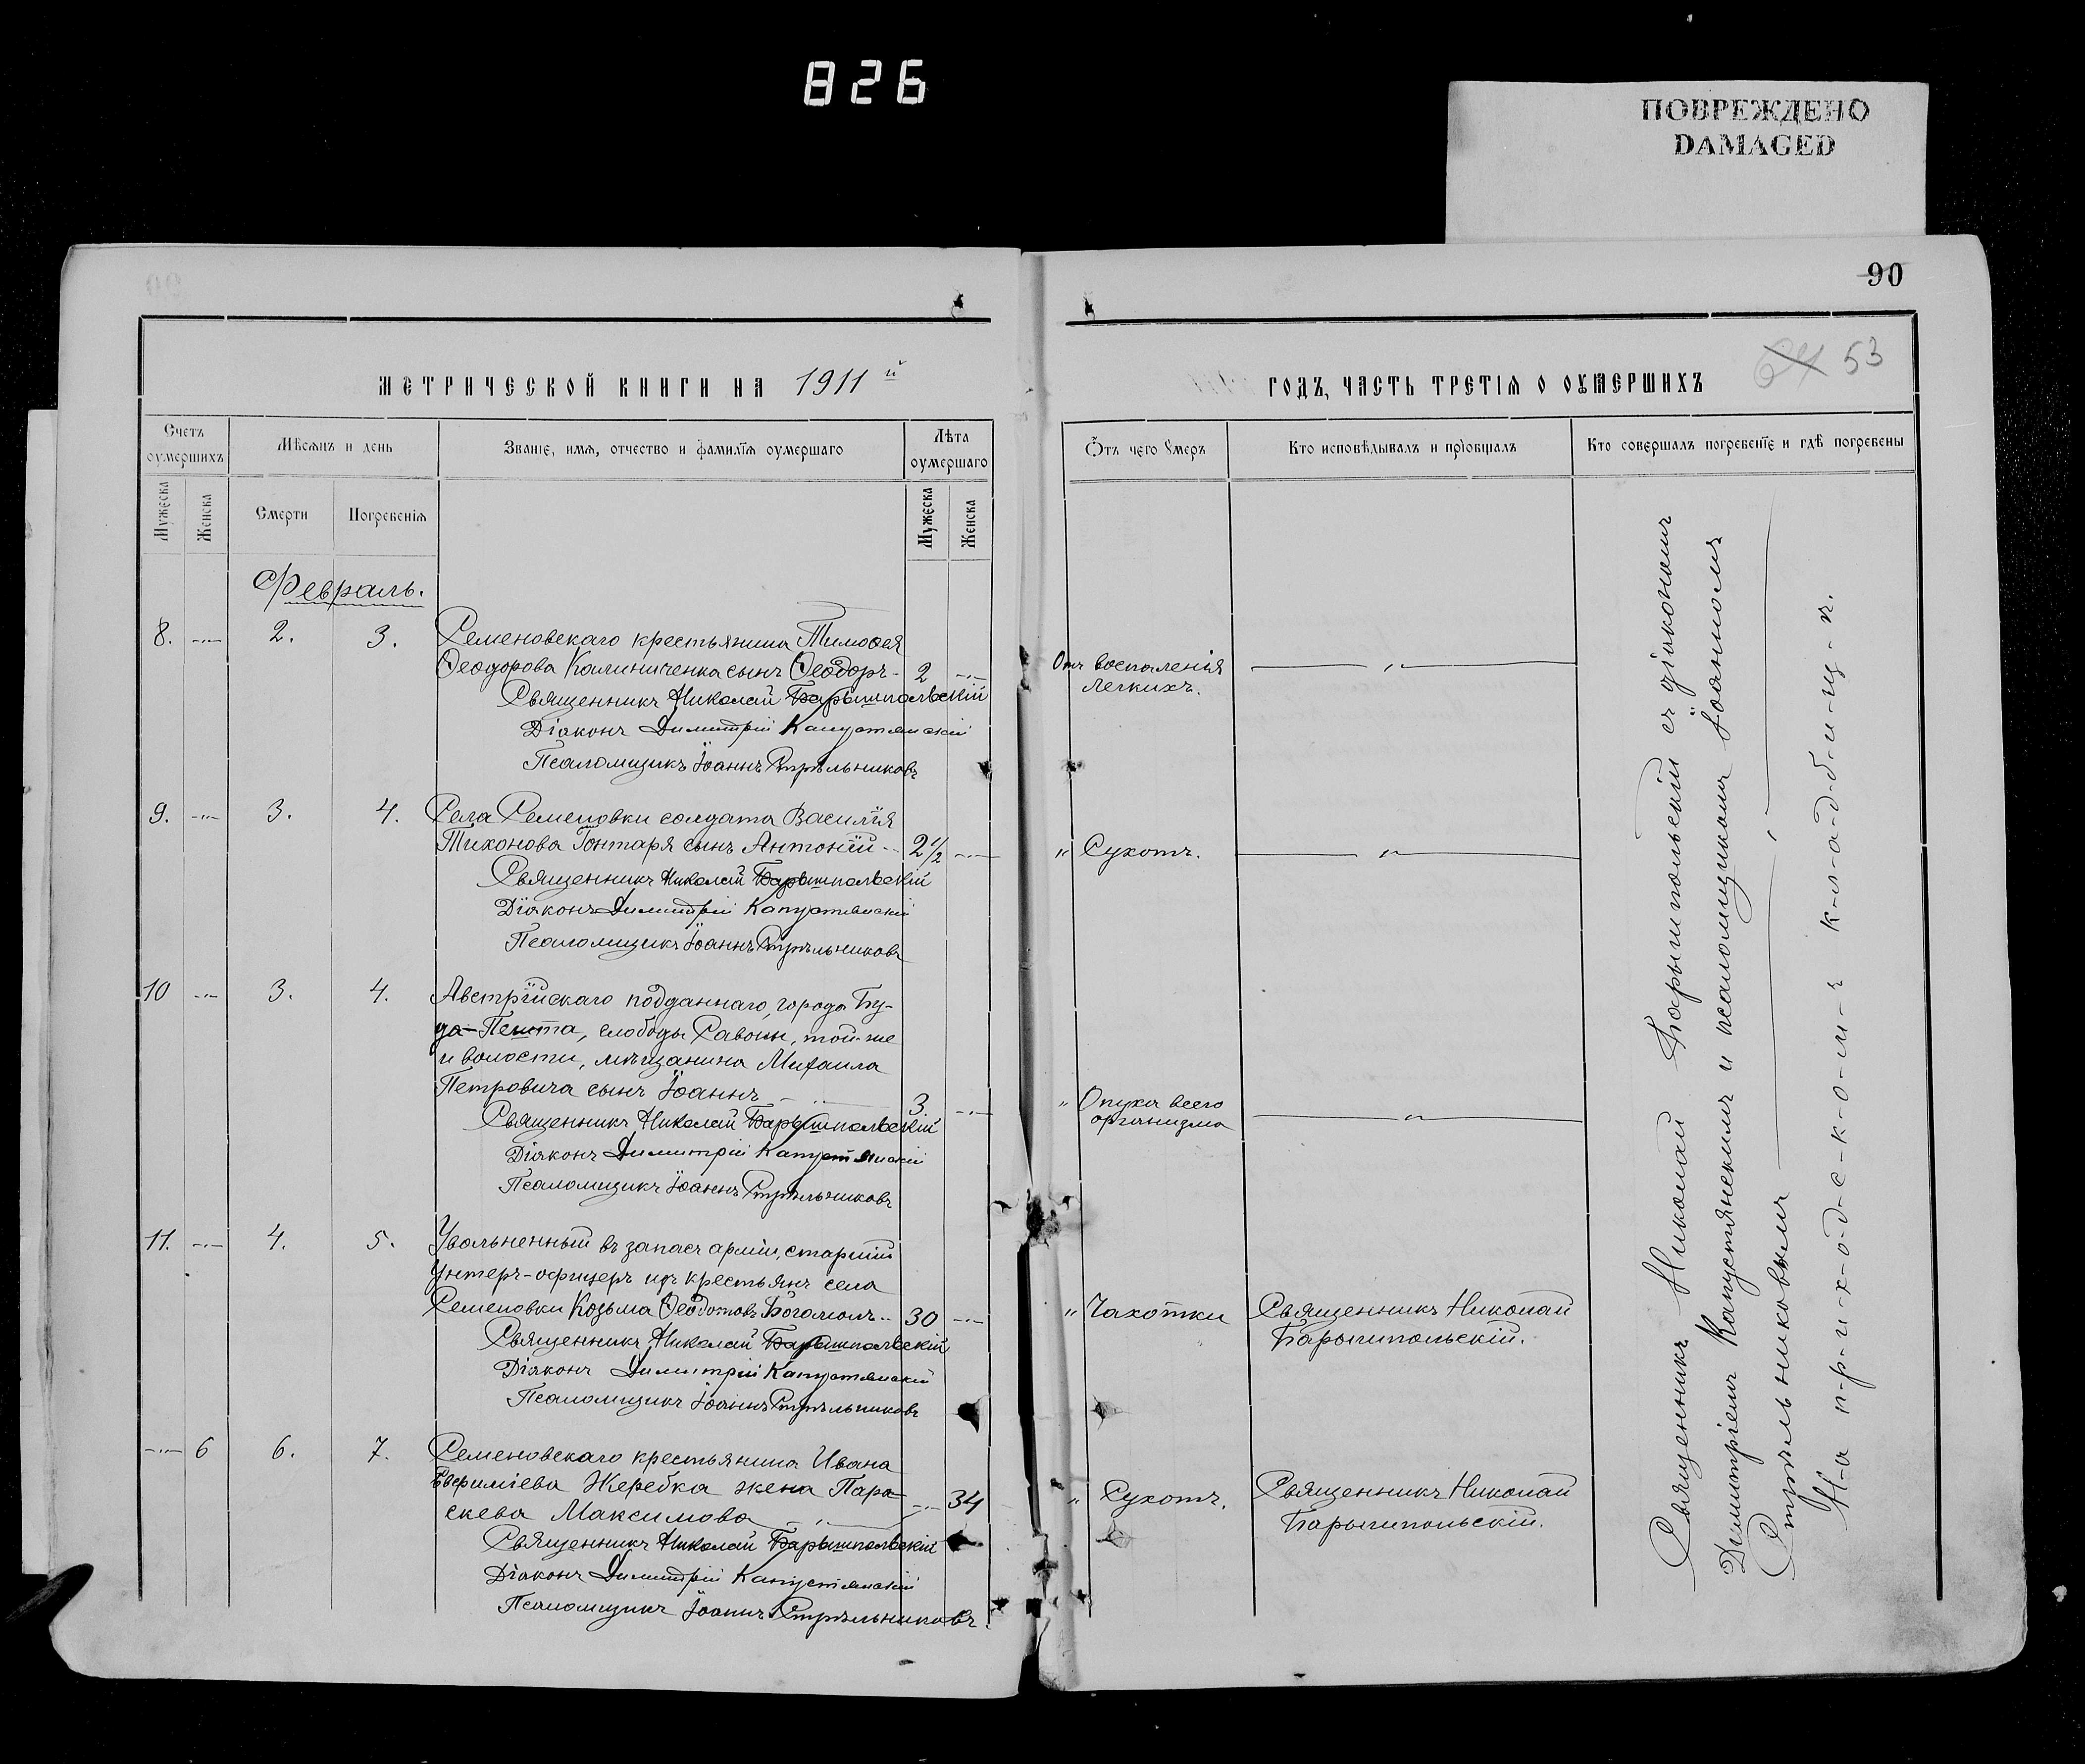 826
ПОВРЕЖДЕНО
DAMAGED
90
64 53
МЕТРИЧЕСКОЙ КНИГИ НА 1911 й
ГОДЪ, ЧАСТЬ ТРЕТІЯ О ОУМЕРШИХЪ
Счетъ оумершихъ
Мѣсяцъ и день
Званіе, имя, отчество и фамилія оумершаго
Лѣта оумершаго
Отъ чего умеръ
Кто исповѣдывалъ и пріобщалъ
Кто совершалъ погребеніе и гдѣ погребены
Мужеска
Женска
Смерти
Погребенія
Мужеска
Женска
Февраль.
8. -"- 2. 3. Семеновскаго крестьянина Тимоѳея
Ѳеодорова Калиниченка сынъ Ѳеодоръ - 2 -"-
Отъ воспаленія
легкихъ. — " —
Священникъ Николай Барышпольскій
Діаконъ Димитрій Капустянскій
Псаломщикъ Іоаннъ Стрѣльниковъ
9. -"- 3. 4. Села Семеновки солдата Василія
Тихонова Гонтаря сынъ Антоній - 2 1/2 -"-
" Сухотъ. — " —
Священникъ Николай Барышпольскій
Діаконъ Димитрій Капустянскій
Псаломщикъ Іоаннъ Стрѣльниковъ
10 -"- 3. 4. Австрійскаго подданнаго, города Бу-
да-Пешта, слободы Савоин, той-же
и волости, мѣщанина Михаила
Петровича сынъ Іоаннъ - " - 3. -"-
" Опухи всего
организма — " —
Священникъ Николай Барышпольскій
Діаконъ Димитрій Капустянскій
Псаломщикъ Іоаннъ Стрѣльниковъ
11. -"- 4. 5. Увольненный въ запасъ арміи, старшій
унтеръ-офицеръ изъ крестьянъ села
Семеновки Козьма Ѳеодотовъ Богомолъ - 30 -"-
" Чахотки
Священникъ Николай
Барышпольскій.
Священникъ Николай Барышпольскій
Діаконъ Димитрій Капустянскій
Псаломщикъ Іоаннъ Стрѣльниковъ
-"- 6 6. 7. Семеновскаго крестьянина Ивана
Евѳиміева Жеребка жена Пара-
скева Максимова - " - -"- 34
" Сухотъ.
Священникъ Николай
Барышпольскій.
Священникъ Николай Барышпольскій
Діаконъ Димитрій Капустянскій
Псаломщикъ Іоаннъ Стрѣльниковъ.
Священникъ Николай Барышпольскій съ діакономъ
Димитріемъ Капустянскимъ и псаломщикомъ Іоанномъ
Стрѣльниковымъ — " —
На п-р-и-х-о-д-с-к-о-м-ъ к-л-а-д-б-и-щ-ѣ.